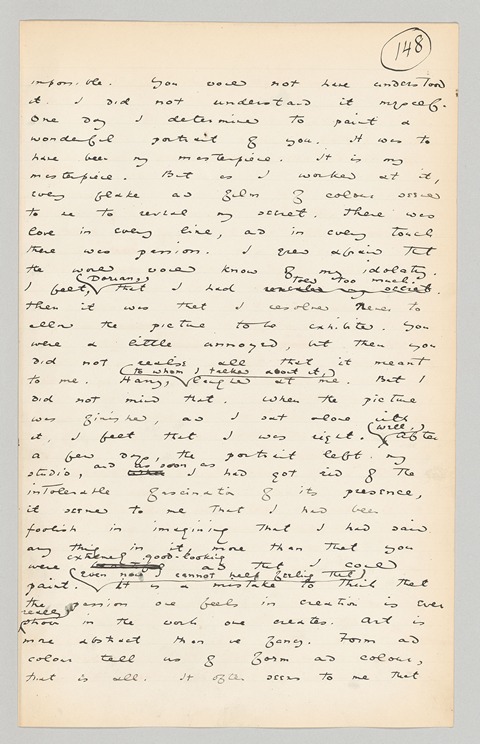 148
impossible. You would not have understood
it. I did not understand it myself.
One day I determined to paint a
wonderful portrait of you. It was to
have been my masterpiece. It is my
masterpiece. But as I worked at it,
every flake and film of colour seemed
to me to reveal my secret. There was
love in every line, and in every touch
there was passion. I grew afraid that
the world would know of my idolatry.
(Dorian,) told too much.
I felt, that I had revealed my secret.
Then it was that I resolved never to
allow the picture to be exhibited. You
were a little annoyed, but then you
did not realise all that it meant
(to whom I talked about it,)
to me. Harry, laughed at me. But I
did not mind that. When the picture
was finished, and I sat alone with
(Well,)
it, I felt that I was right. After
a few days, the portrait left my
studio, and as soon as I had got rid of the
intolerable fascination of its presence,
it seemed to me that I had been
foolish in imagining that I had said
anything in it, more than that you
extremely good-looking
were and that I could
(Even now I cannot help feeling that)
paint. It is a mistake to think that
the passion one feels in creation is ever
really
shown in the work one creates. Art is
more abstract than we fancy. Form and
colour tell us of form and colour,
that is all. It often seems to me that